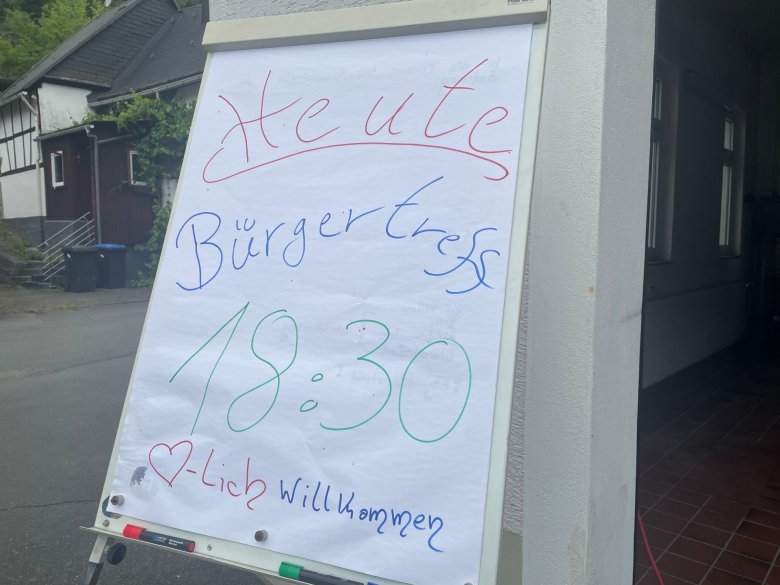 Heute
Bürgertreff
18:30
♡-Lich Willkommen